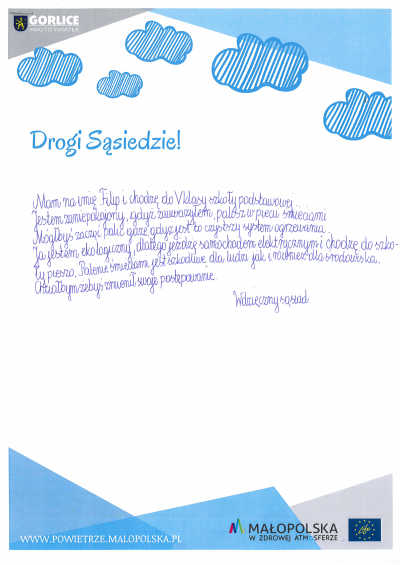 GORLICE
MIASTO ŚWIATŁA
Drogi Sąsiedzie!
Mam na imię Filip i chodzę do V klasy szkoły podstawowej.
Jestem zaniepokojony, gdyż zauważyłem, palisz w piecu śmieciami.
Mógłbyś zacząć palić gazem gdyż jest to czystszy system ogrzewania.
Ja jestem ekologiczny, dlatego jeżdżę samochodem elektrycznym i chodzę do szko-
ły pieszo. Palenie śmieciami jest szkodliwe dla ludzi jak i również dla środowiska.
Chciałbym żebyś zmienił swoje postępowanie.
Wdzięczny sąsiad
WWW.POWIETRZE.MALOPOLSKA.PL
MAŁOPOLSKA
W ZDROWEJ ATMOSFERZE
life